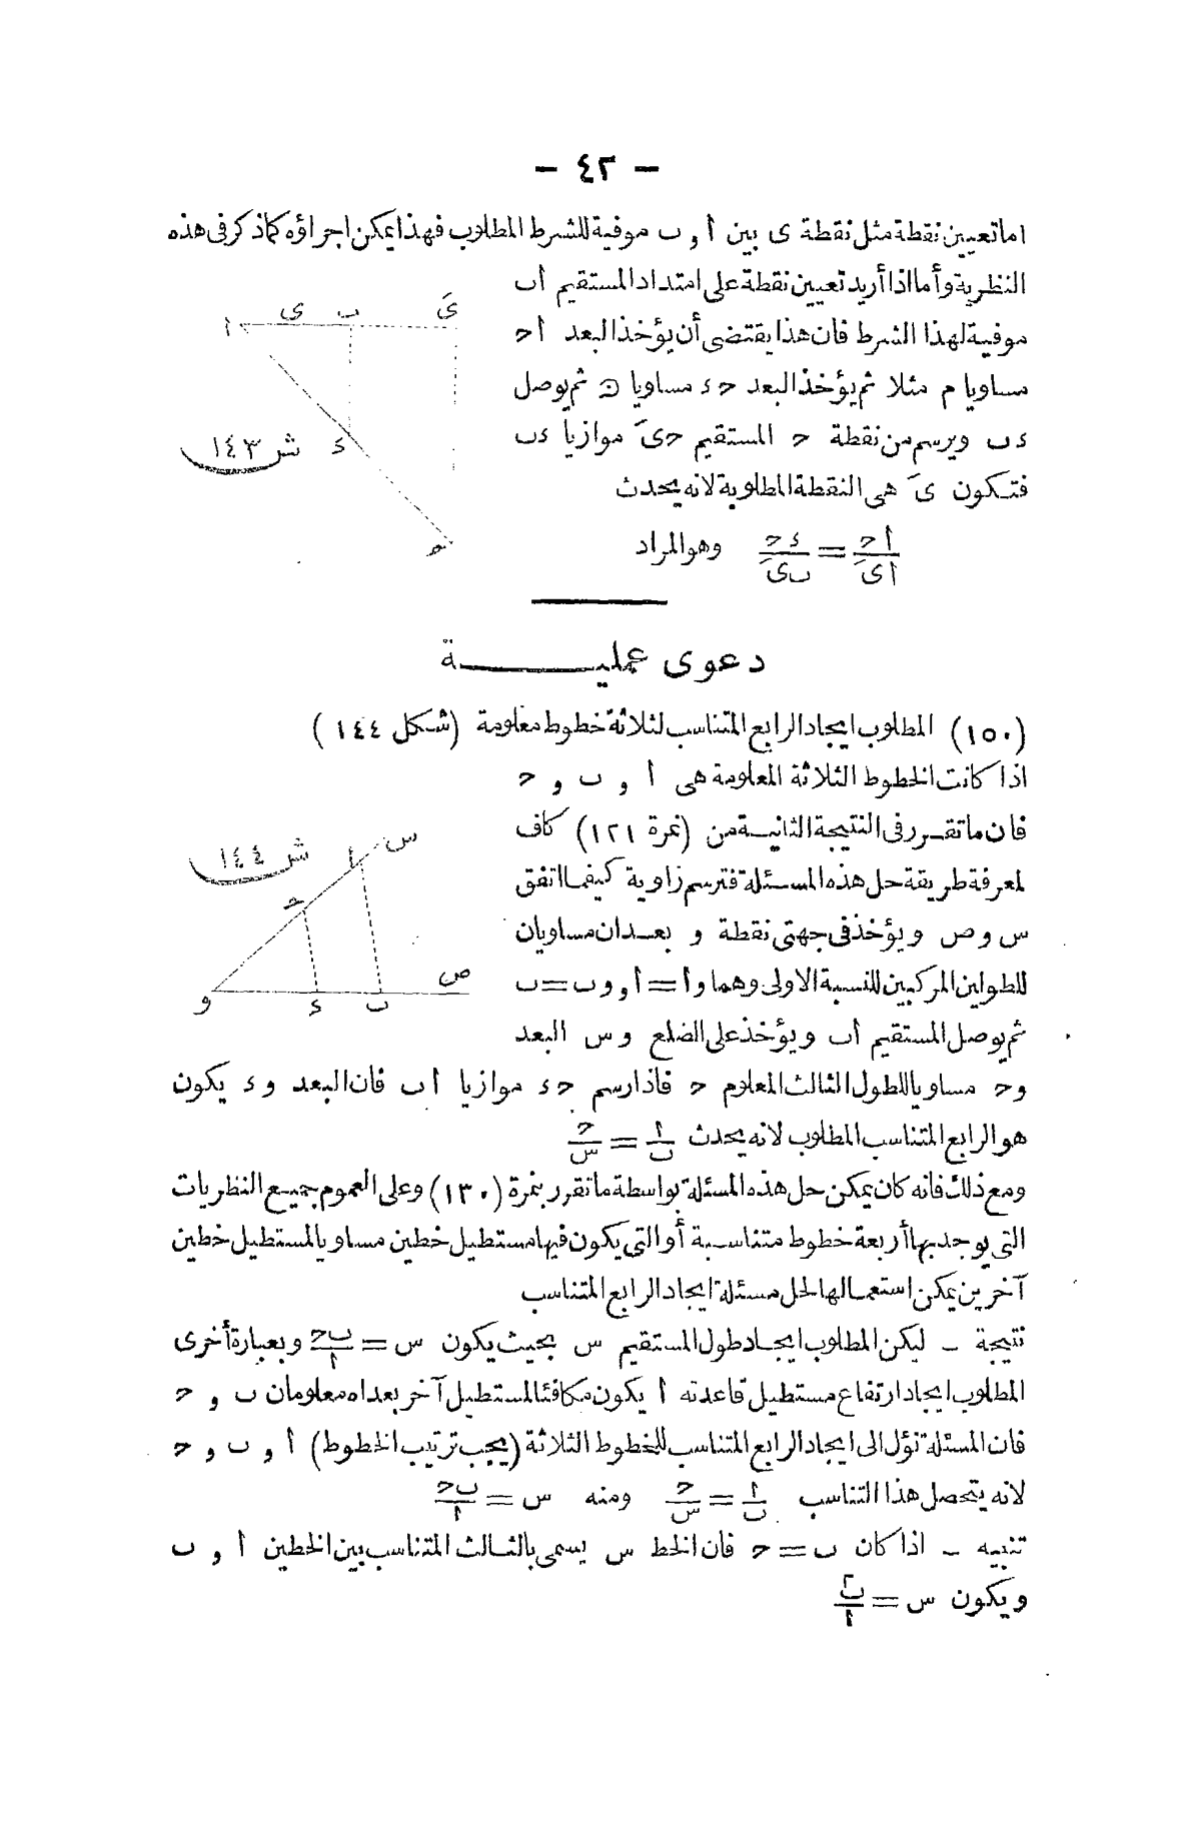 — ٤٢ —
اما تعيين نقطة مثل نقطة ى بين أ و ب موفية للشرط المطلوب فهذا يمكن اجراؤه كما ذكر فى هذه
النظرية وأما اذا أريد تعيين نقطة على امتداد المستقيم أب
موفية لهذا الشرط فان هذا يقتضى أن يؤخذ البعد أح
مساويا م مثلا ثم يؤخذ البعد حء مساويا ن ثم يوصل
ءب ويرسم من نقطة ح المستقيم حىَ موازيا ءب
فتكون ىَ هى النقطة المطلوبة لانه يحدث
أح/أىَ = ءح/بىَ وهو المراد
ا ى ب ىَ
ء
ح
ش ١٤٣
دعوى عملية
(١٥٠) المطلوب ايجاد الرابع المتناسب لثلاثة خطوط معلومة (شكل ١٤٤)
اذا كانت الخطوط الثلاثة المعلومة هى أ و ب و ح
فان ما تقرر فى النتيجة الثانية من (نمرة ١٢١) كاف
لمعرفة طريقة حل هذه المسئلة فترسم زاوية كيفما اتفق
س و ص ويؤخذ فى جهتى نقطة و بعدان مساويان
للطولين المركبين للنسبة الاولى وهما وأ = أ و وب = ب
ثم يوصل المستقيم أب ويؤخذ على الضلع وس البعد
وح مساويا للطول الثالث المعلوم ح فاذا رسم حء موازيا أب فان البعد وء يكون
هو الرابع المتناسب المطلوب لانه يحدث أ/ب = ح/س
ش ١٤٤
س
ا
ح
و ء ب ص
ومع ذلك فانه كان يمكن حل هذه المسئلة بواسطة ما تقرر بنمرة (١٣٠) وعلى العموم جميع النظريات
التى يوجد بها أربعة خطوط متناسبة أو التى يكون فيها مستطيل خطين مساويا لمستطيل خطين
آخرين يمكن استعمالها لحل مسئلة ايجاد الرابع المتناسب
نتيجة — ليكن المطلوب ايجاد طول المستقيم س بحيث يكون س = بح/أ وبعبارة أخرى
المطلوب ايجاد ارتفاع مستطيل قاعدته أ يكون مكافئا لمستطيل آخر بعداه معلومان ب و ح
فان المسئلة تؤل الى ايجاد الرابع المتناسب للخطوط الثلاثة (يجب ترتيب الخطوط) أ و ب و ح
لانه يتحصل هذا التناسب أ/ب = ح/س ومنه س = بح/أ
تنبيه — اذا كان ب = ح فان الخط س يسمى بالثالث المتناسب بين الخطين أ و ب
ويكون س = ب٢/أ